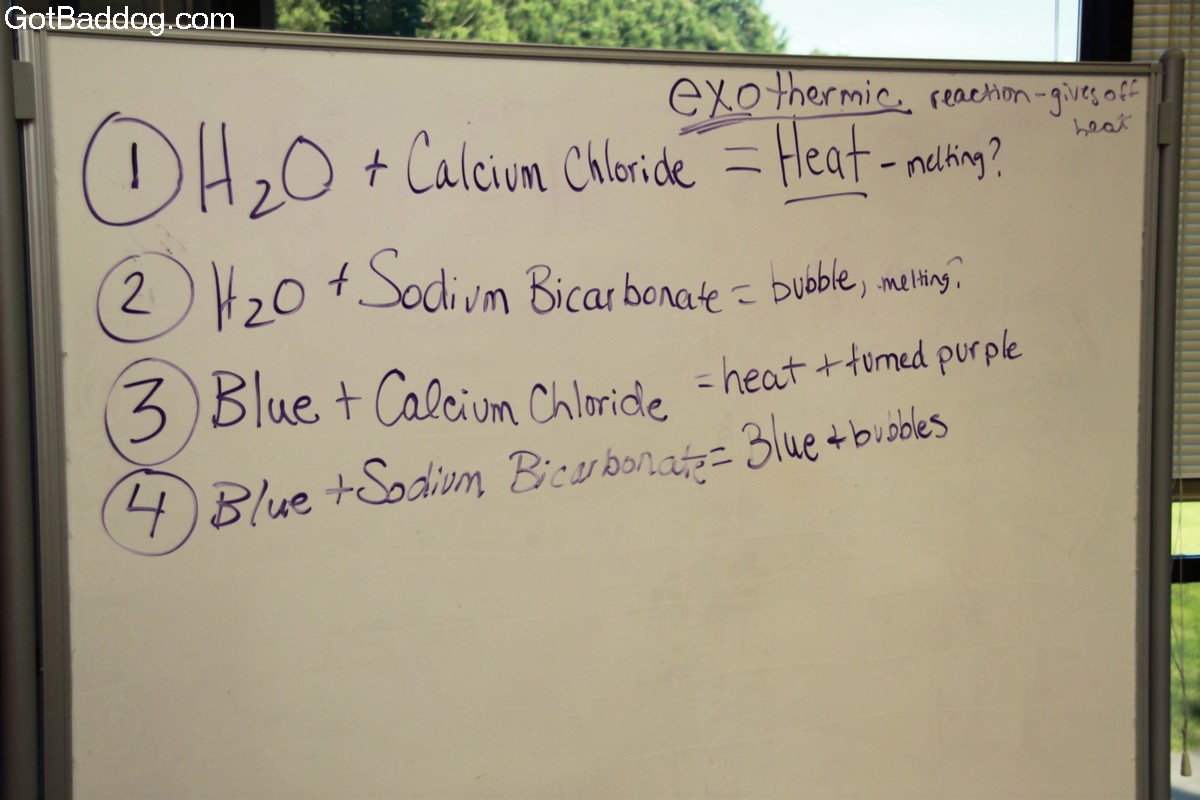 GotBaddog.com
exothermic reaction - gives off
heat
1 H2O + Calcium Chloride = Heat - melting?
2 H2O + Sodium Bicarbonate = bubble, melting?
3 Blue + Calcium Chloride = heat + turned purple
4 Blue + Sodium Bicarbonate = Blue + bubbles